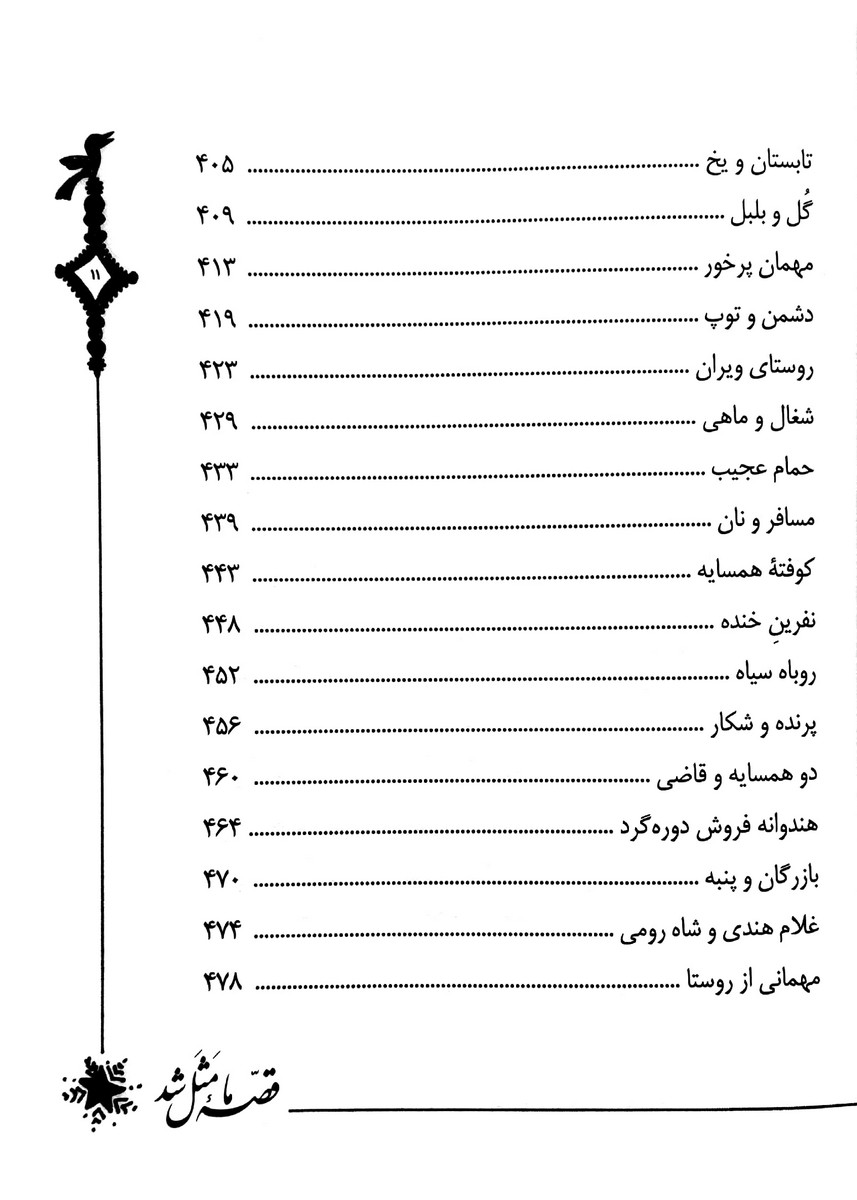 تابستان و یخ ........ ۴۰۵
گُل و بلبل ........ ۴۰۹
مهمان پرخور ........ ۴۱۳
دشمن و توپ ........ ۴۱۹
روستای ویران ........ ۴۲۳
شغال و ماهی ........ ۴۲۹
حمام عجیب ........ ۴۳۳
مسافر و نان ........ ۴۳۹
کوفتهٔ همسایه ........ ۴۴۳
نفرینِ خنده ........ ۴۴۸
روباه سیاه ........ ۴۵۲
پرنده و شکار ........ ۴۵۶
دو همسایه و قاضی ........ ۴۶۰
هندوانه فروش دوره‌گرد ........ ۴۶۴
بازرگان و پنبه ........ ۴۷۰
غلام هندی و شاه رومی ........ ۴۷۴
مهمانی از روستا ........ ۴۷۸
۱۱
قصّهٔ ما مَثَل شد